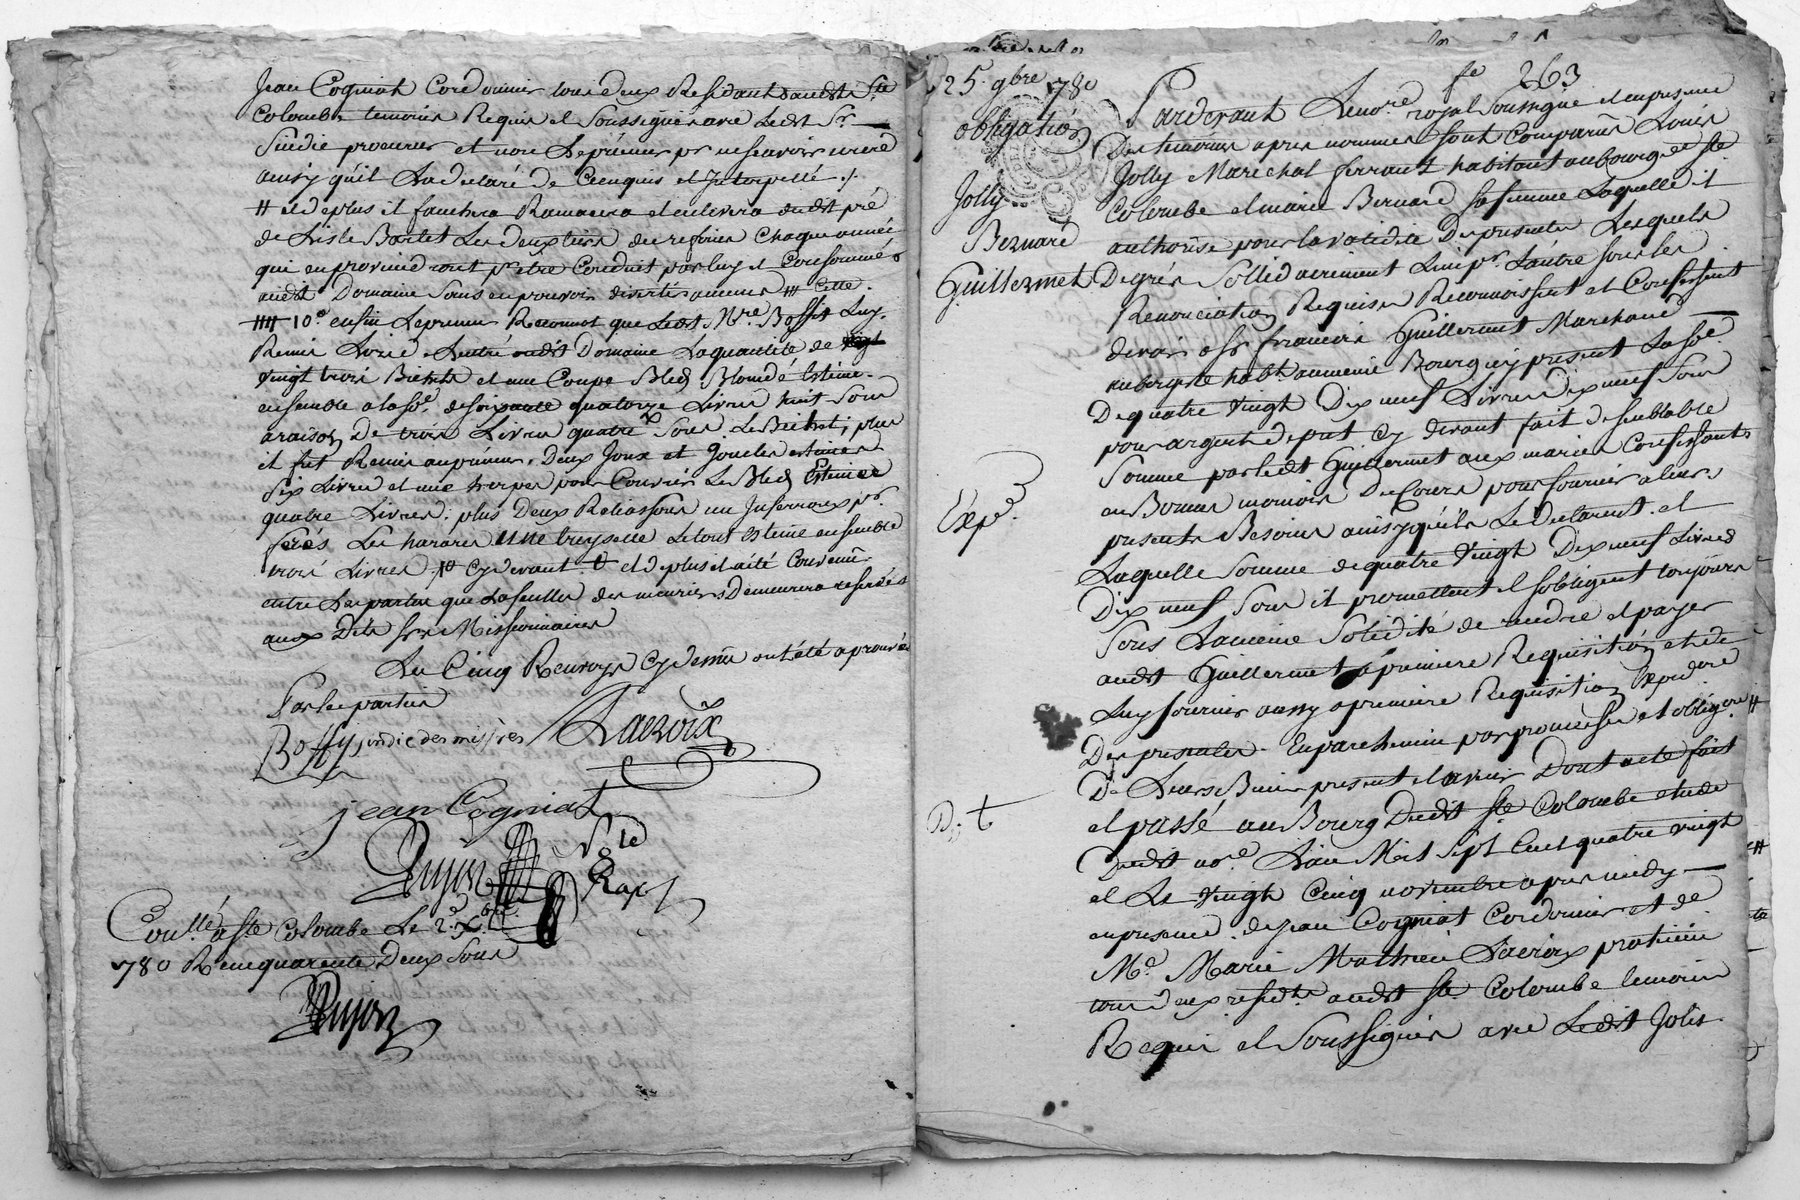 Jean Cogniat Cordonnier tous deux Residants audit Ste
Colombe temoins Requis et Soussignés avec Ledit Sr.
Sindic procureur et non Le preneur pr ne scavoir ecrire
ainsy qu'il La declaré de Ce enquis et Interpellé ./.
# et de plus il fauchera Ramassera et enlevera dudit pré
de L'isle Barlet Les deux tiers des refoins Chaque année
qui en proviendront pr être Conduit par luy et Consommé
audit Domaine Sans en pouvoir divertir aucuns ## Cette
#### 10e enfin Le preneur Reconnoit que Ledit Mre Boffy Luy
Remis Livré a Lentré audit Domaine La quantité de
vingt trois Bichets et une Coupe Bled Blondé Estimé
ensemble a la Se. de soixante quatorze Livres huit Sous
a raison De trois Livres quatre Sous Le Bichet; plus
il fut Remis au preneur, Deux Joux et Joucles estimés
Six Livres et une herpe pour Couvrir Les Bleds Estimée
quatre Livres; plus Deux un pr.
Les une Le tout Estimé ensemble
trois Livres Cy devant et de plus il a été Convenu
entre Les parties que La feuille des meuriers Demeurera reservée
aux Dits Srs Missionnaires
Les Cinq Renvoys Cy dessus ont été aprouvés
Par les parties
Boffy sindic des missres Lacroix
jean Cogniat
Dujon Nre
Roy
Conllé a Ste Colombe Le 2. Xbre
1780 Recu quarente Deux Sous
Dujon
fe 263
25. 9bre 1780
obligation
Jolly
Bernard
Guillermet
Expe.
Pardevant Le nore. royal Soussigné et en presence
Des temoins apres nommés Sont Comparus Louis
Jolly Marechal ferrant habitant au bourg de Ste
Colombe et marie Bernard sa femme Laquelle il
authorise pour la validite Des presentes Lesquels
De gré Sollidairement L'un pr. L'autre sous les
Renonciation Requises Reconnoissent et Confessent
devoir a Sr francois Guillermet Marchand
aubergiste habt. au meme Bourg icy present La Se.
De quatre vingt Dix neuf Livres Dix neuf Sous
pour argent de pret Cy devant fait de semblable
Somme par ledt Guillermet aux maries Confessants
en Bonne monnoie De Cours pour fournir a leurs
presents Besoins ainsy qu'ils Le Declarent et
Laquelle Somme de quatre Vingt Dix neuf Livres
Dix neuf Sous il promettent et s'obligent toujours
Sous La meme Solidité de rendre et payer
audt Guillermet a premiere Requisition et de
Luy fournir aussy a premiere Requisition Expdre
Des presentes En parchemin par promesses et obligons #
De Leurs Biens presents et avenir Dont acte fait
et passé au Bourg Dudit Ste Colombe etude
Dudit nore. L'an Mil Sept Cent quatre vingt
et Le vingt Cinq novembre apres midy
en presence de Jean Cogniat Cordonnier et de
Me. Marie Mathieu Lacroix praticien
tous deux residts audit Ste Colombe temoins
Requis et Soussignés avec Ledit Jolis